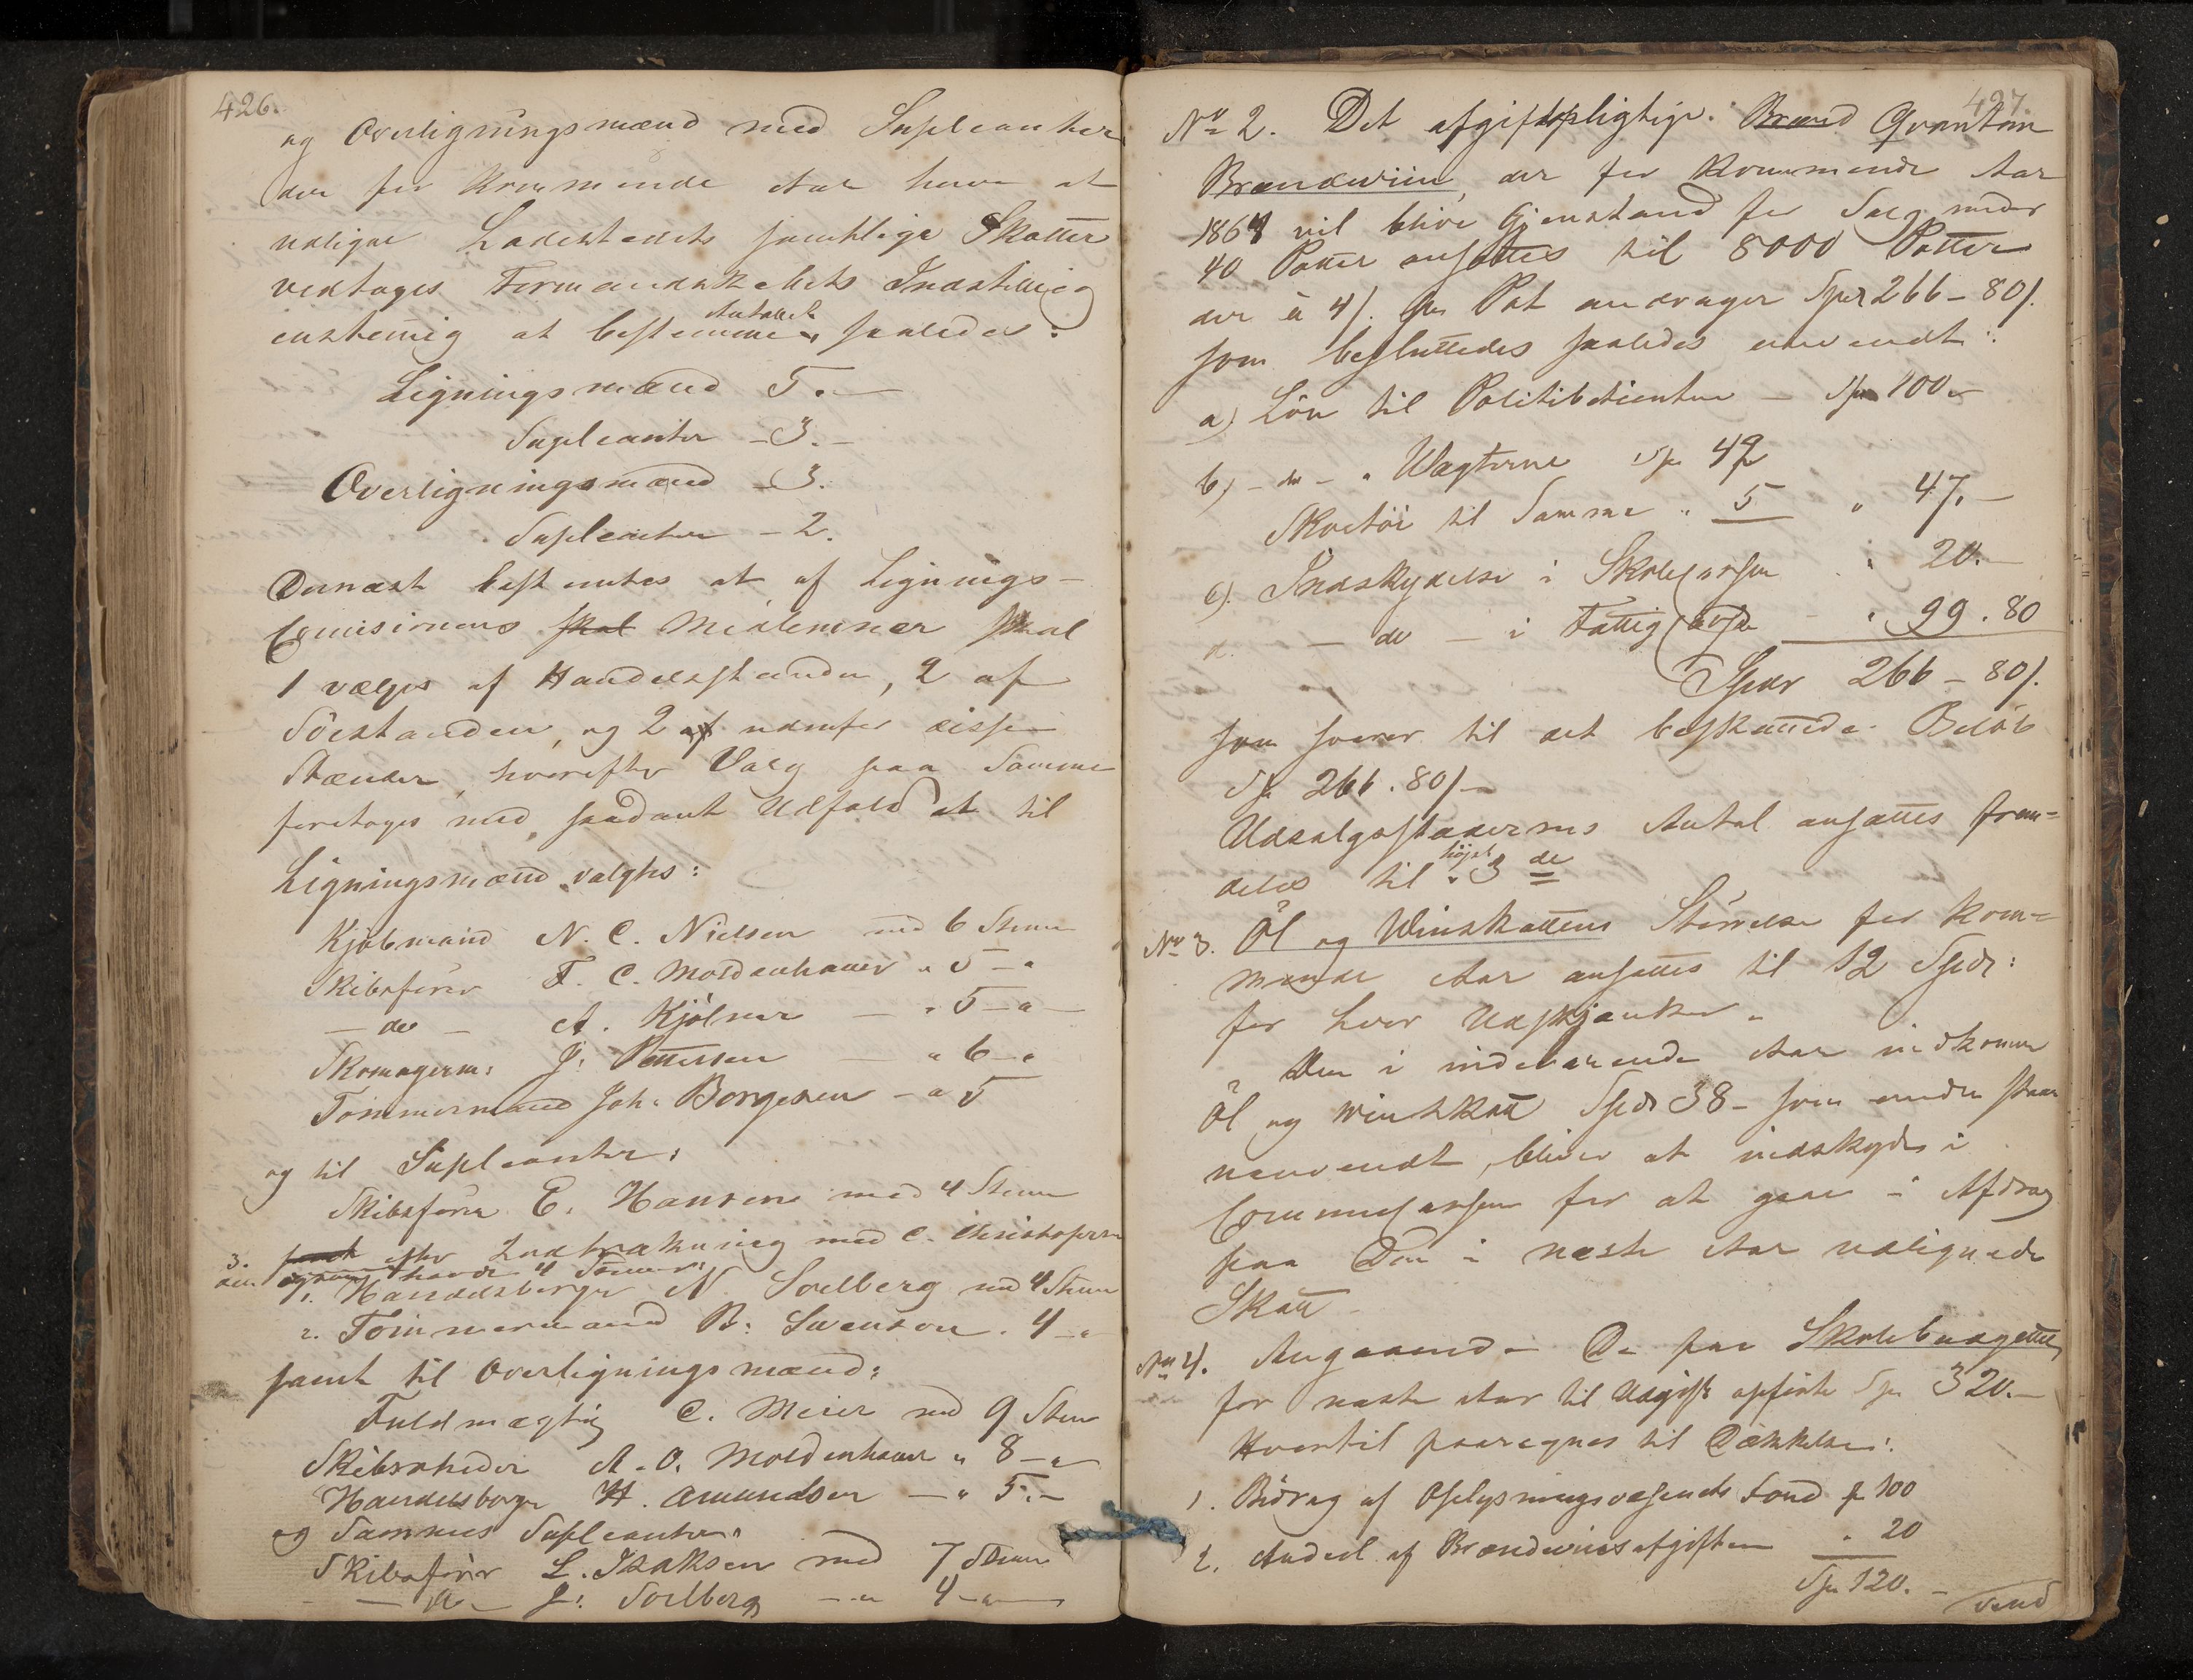 426.
og Overligningsmænd med Supleanter
der for kommende Aar have at
udligne Ladestedets samtlige Skatter
vedtoges Formandskabets Indstilling
enstemig at bestemme Antallet saaledes:
Ligningsmænd 5.-
Supleanter - 3.-
Overligningsmænd - 3.
Supleanter - 2.
Dernæst bestemtes at af Lignings-
Comisionens skal Medlemmer skal
1 vælges af Handelsstanden, 2 af
Söestanden, og 2 af udenfor disse
Stænder, hvorefter Valg paa Samme
foretoges med saadant Udfald at til
Ligningsmænd valgtes:
Kjöbmand N. C. Nielsen med 6 Stemr
Skibsförer F. C. Moldenhauer " 5 - "
- do - A. Kjölner - " 5 - "
Skomagerm: J. Pettersen - " 6 - "
Tömmermand Joh. Borgesen - " 5
og til Supleanter:
Skibsförer E. Hansen med 4 Stemr
3. efter Lodtrækning med C. Christophersen
der havde 4 Stemmer
1. Handelsborger N. Soelberg med 4 Stemr
2. Tömmermand B. Svenson. 4 - "
samt til Overligningsmænd:
Fuldmægtig C. Meier med 9 Stem
Skibsrheder A. O. Moldenhauer " 8 - "
Handelsborger H. Amundsen - " 5.-
og Sammes Supleanter:
Skibsförer L. Isaksen med 7 Stemr
- do - J. Soelberg - " 4 - "
427.
No 2. Det afgiftspligtige Brænd Qvantum
Brændeviin, der for kommende Aar
1864 vil blive Gjenstand for Salg under
40 Potter ansattes til 8000 Potter
der à 4 s. pr Pot andrager Spdr 266 - 80 s.
som besluttedes saaledes anvendt:
a) Lön til Politibetienten - Spd 100 -
b) - do - " Vagterne Sp 42
Skoetöi til Samme " 5 " 47.-
c). Indskydelse i Skolecassen " 20.-
d. - do - i Fattigcassen - " 99.80
Spdr 266 - 80 s.
som svarer til det beskattede Belöb
Sp 266.80 s -
Udsalgsstædernes Antal ansattes frem-
deles til höjst 3 de
No 3. Öl og Vinskattens Störrelse for kom-
mende Aar ansattes til 12 Spdr:
for hver Udskjænker.
Den i indeværende Aar indkomne
Öl og Vinskatt Spdr 38 - som endnu staar
uanvendt, bliver at indskydes i
Communecassen for at gaae i Afdrag
paa Den i næste Aar udlignede
Skatt -
No 4. Angaaende De paa Skolebudgettet
for næste Aar til Udgift opförte Sp 320.-
Hvortil paaregnes til Dækkelse:
1. Bidrag af Oplysningsvæsenets Fond Sp 100
2. Andeel af Brændeviinsafgiften " 20
Spd 120. -
vend